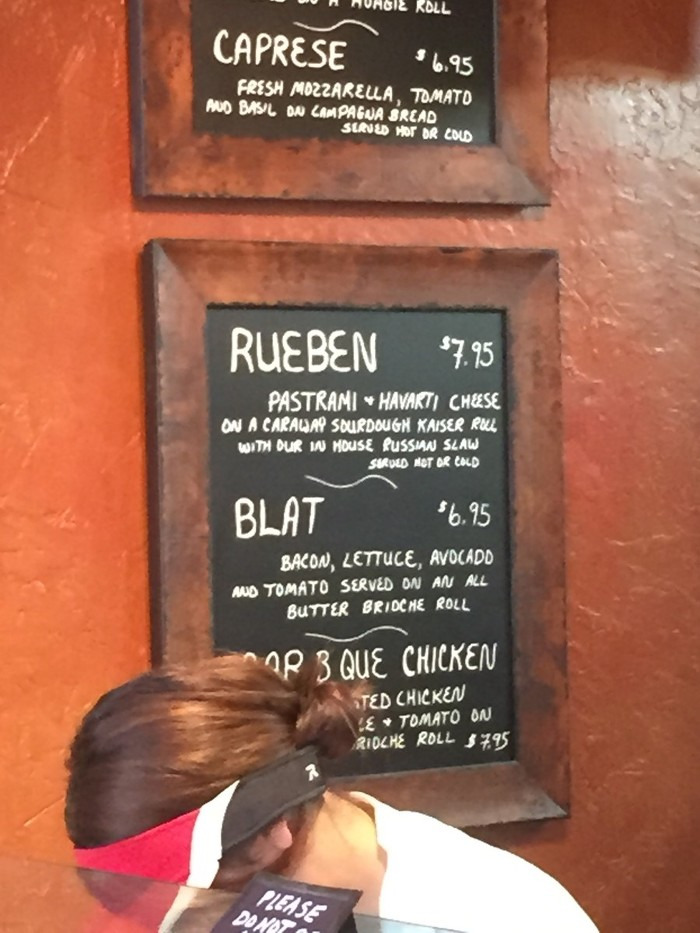 ON A HOAGIE ROLL
CAPRESE $6.95
FRESH MOZZARELLA, TOMATO
AND BASIL ON CAMPAGNA BREAD
SERVED HOT OR COLD
RUEBEN $7.95
PASTRAMI + HAVARTI CHEESE
ON A CARAWAY SOURDOUGH KAISER ROLL
WITH OUR IN HOUSE RUSSIAN SLAW
SERVED HOT OR COLD
BLAT $6.95
BACON, LETTUCE, AVOCADO
AND TOMATO SERVED ON AN ALL
BUTTER BRIOCHE ROLL
BAR B QUE CHICKEN
CHICKEN
+ TOMATO ON
BRIOCHE ROLL $7.95
PLEASE
DO NOT